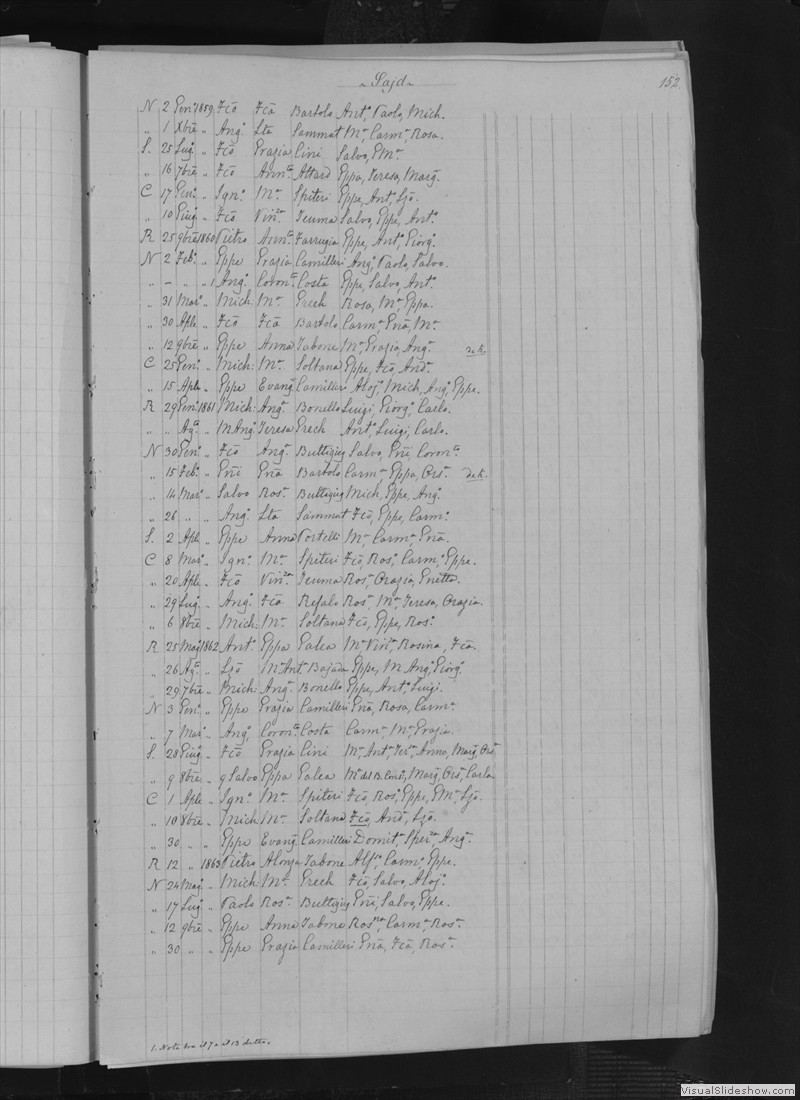 Sajd
152
N 2 Gen° 1859 Fcō Fcā Bartolo Ant°, Paolo, Mich.
„ 1 Xbre „ Ang° Lta Sammut Mª, Carmª, Rosa.
S. 25 Lug° „ Fcō Grazia Cini Salvo, GMª
„ 16 7bre „ Fcō Annta Attard Eppa, Teresa, Marg.
C 17 Gen° „ Ign° Mª Spiteri Eppe, Ant°,
„ 10 Giug° „ Fcō Vinza Teuma Salvo, Eppe, Ant°
R 25 9bre 1860 Pietro Annta Farrugia Eppe, Ant°, Giorg°
N 2 Feb° „ Eppe Grazia Camilleri Ang°, Paolo, Salvo.
„ – „ „ 1 Ang° Coronta Costa Eppe, Salvo, Ant°
„ 31 Mar° „ Mich: Mª Grech Rosa, Mª, Eppa.
„ 30 Aple „ Fcō Fcā Bartolo Carmª, Gnā, Mª
„ 12 9bre „ Eppe Anna Tabone Mª Grazia, Angª
C 25 Gen° „ Mich: Mª Soltana Eppe, Fcō, And°
„ 15 Aple „ Eppe Evang Camilleri Aloj°, Mich, Ang°, Eppe.
R 29 Gen° 1861 Mich: Angª Bonello Luigi, Giorg°, Carlo.
„ „ Agto „ MAng° Teresa Grech Ant°, Luigi, Carlo.
N 30 Gen° „ Fcō Angª Buttigieg Salvo, Gnī, Coronta
„ 15 Feb° „ Gnī Gnā Bartolo Carmª, Eppa, Orsª
„ 14 Mar° „ Salvo Rosª Buttigieg Mich, Eppe, Ang°
„ 26 „ „ Ang° Lta Sammut Fcō, Eppe, Carm°
S. 2 Aple „ Eppe Anna Portelli Mª Carmª Gnā.
C 8 Mar° „ Ign° Mª Spiteri Fcō, Ros°, Carm°, Eppe.
„ 20 Aple „ Fcō Vinza Teuma Rosª, Grazia,
„ 29 Lug° „ Ang° Fcā Refalo Rosª, Mª, Teresa, Grazia.
„ 6 8bre „ Mich: Mª Soltana Fcō, Eppe, Ros°
R 25 Mag° 1862 Ant° Eppa Galea Mª Vinza, Rosina, Fcā.
„ 26 Agto „ MªAntª Bajada Eppe, MAng°, Giorg°
„ 29 7bre „ Mich: Angª Bonello Eppe, Ant°, Luigi.
N 3 Gen° „ Eppe Grazia Camilleri Gnā, Rosa, Carmª
„ 7 Mar° „ Ang° Coronta Costa Carmª, Mª, Grazia.
S. 28 Giug° „ Fcō Grazia Cini Mª, Antª, Anna, Marg,
„ 9 8bre „ Salvo Eppa Galea Marg, Carla
C 1 Aple „ Ign° Mª Spiteri Fcō, Ros°, Eppe,
„ 10 8bre „ Mich: Mª Soltana Fcō, And°,
„ 30 „ „ Eppe Evang Camilleri Angª
R 12 „ 1863 Pietro Tabone Carm°, Eppe.
N 24 Mag° „ Mich: Mª Grech Fcō, Salvo, Aloj°
„ 17 Lug° „ Paolo Rosª Buttigieg Gnī, Salvo, Eppe.
„ 12 9bre „ Eppe Anna Tabone Carmª, Rosª
„ 30 „ „ Eppe Grazia Camilleri Gnā, Fcā, Rosª
1. Nota tra il 7 e il 13 detto.
VisualSlideshow.com